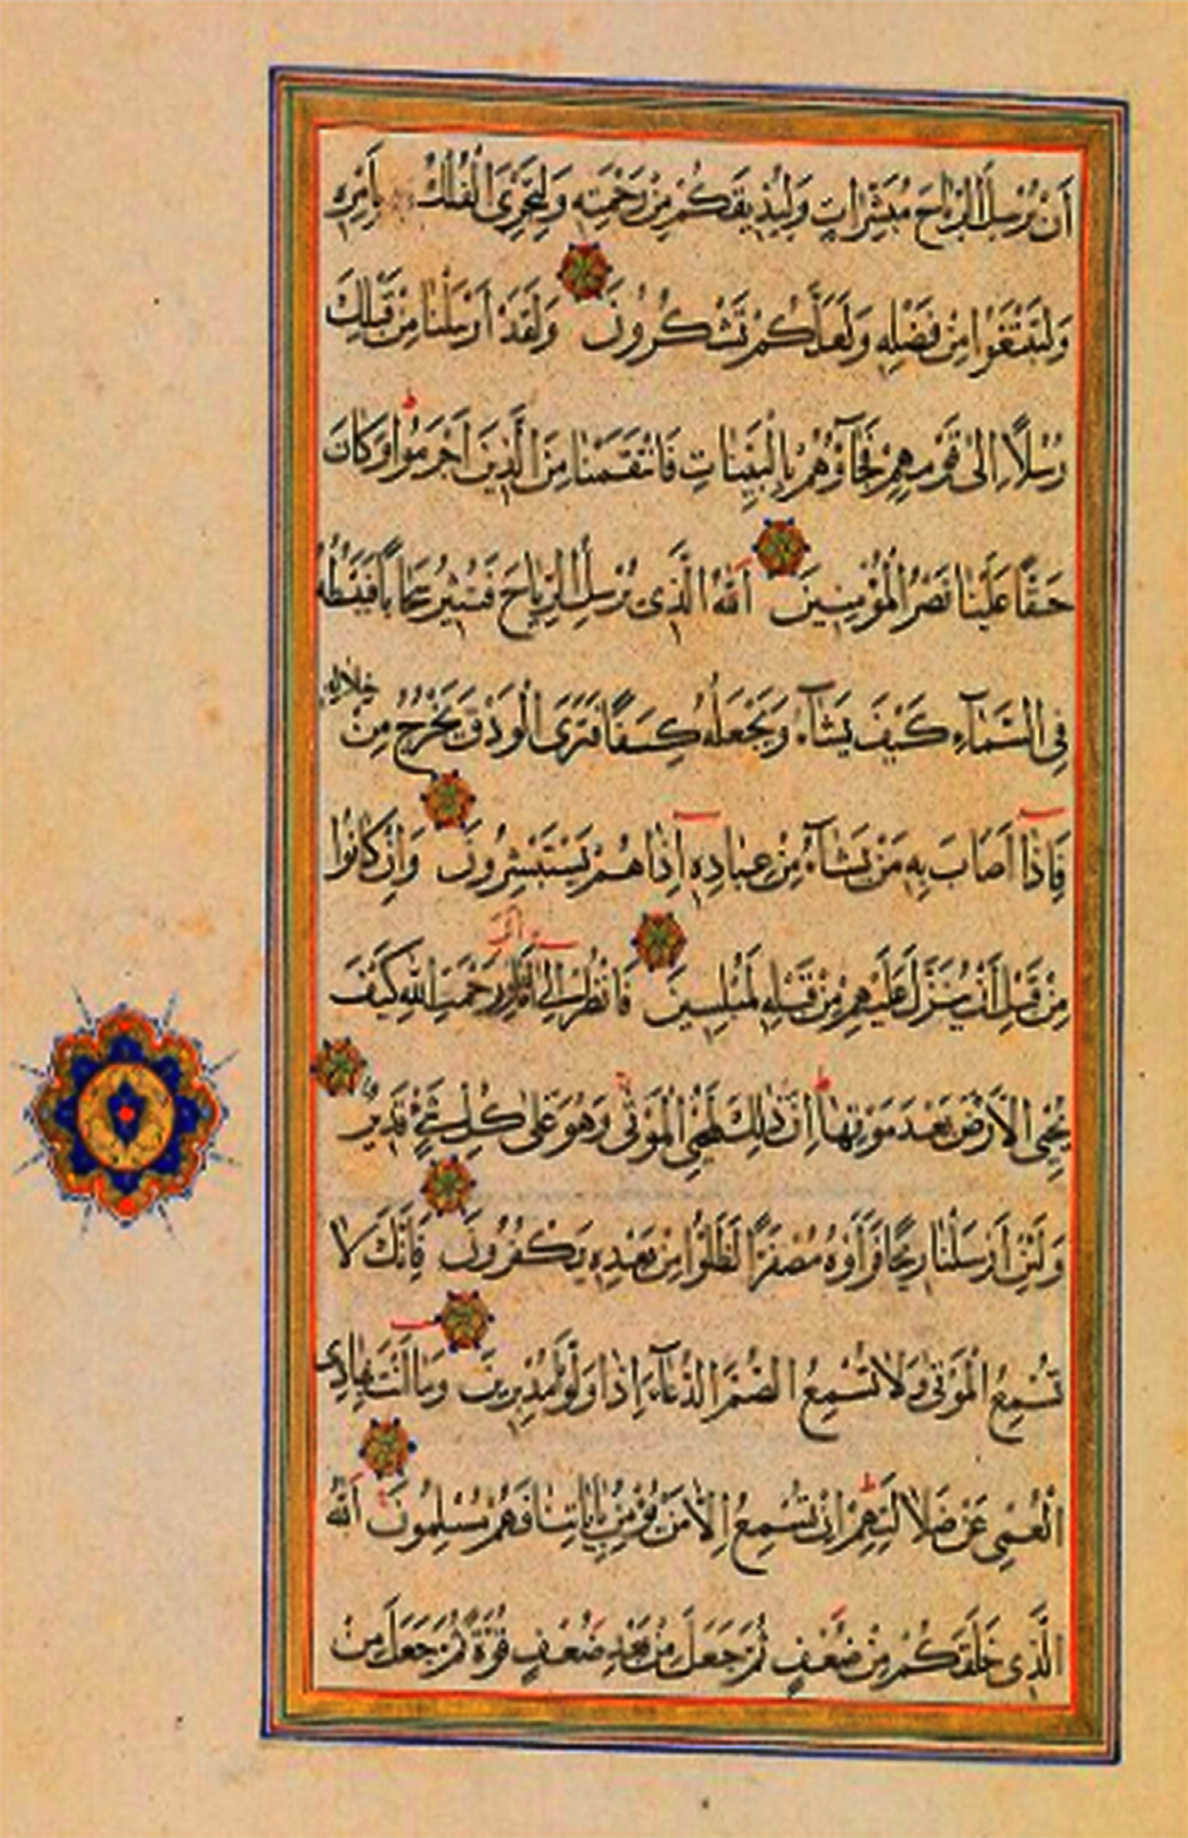 أَنْ يُرْسِلَ الرِّيَاحَ مُبَشِّرَاتٍ وَلِيُذِيقَكُمْ مِنْ رَحْمَتِهِ وَلِتَجْرِيَ الْفُلْكُ بِأَمْرِهِ
وَلِتَبْتَغُوا مِنْ فَضْلِهِ وَلَعَلَّكُمْ تَشْكُرُونَ وَلَقَدْ أَرْسَلْنَا مِنْ قَبْلِكَ
رُسُلًا إِلَى قَوْمِهِمْ فَجَآؤُهُمْ بِالْبَيِّنَاتِ فَانْتَقَمْنَا مِنَ الَّذِينَ أَجْرَمُوا وَكَانَ
حَقًّا عَلَيْنَا نَصْرُ الْمُؤْمِنِينَ اَللهُ الَّذِي يُرْسِلُ الرِّيَاحَ فَتُثِيرُ سَحَابًا فَيَبْسُطُهُ
فِي السَّمَآءِ كَيْفَ يَشَآءُ وَيَجْعَلُهُ كِسَفًا فَتَرَى الْوَدْقَ يَخْرُجُ مِنْ خِلَالِهِ
فَإِذَا أَصَابَ بِهِ مَنْ يَشَآءُ مِنْ عِبَادِهِ إِذَا هُمْ يَسْتَبْشِرُونَ وَإِنْ كَانُوا
مِنْ قَبْلِ أَنْ يُنَزَّلَ عَلَيْهِمْ مِنْ قَبْلِهِ لَمُبْلِسِينَ فَانْظُرْ إِلَى آثَارِ رَحْمَتِ اللهِ كَيْفَ
يُحْيِي الْأَرْضَ بَعْدَ مَوْتِهَا إِنَّ ذَلِكَ لَمُحْيِي الْمَوْتَى وَهُوَ عَلَى كُلِّ شَيْءٍ قَدِيرٌ
وَلَئِنْ أَرْسَلْنَا رِيحًا فَرَأَوْهُ مُصْفَرًّا لَظَلُّوا مِنْ بَعْدِهِ يَكْفُرُونَ فَإِنَّكَ لَا
تُسْمِعُ الْمَوْتَى وَلَا تُسْمِعُ الصُّمَّ الدُّعَآءَ إِذَا وَلَّوْا مُدْبِرِينَ وَمَا أَنْتَ بِهَادِي
الْعُمْيِ عَنْ ضَلَالَتِهِمْ إِنْ تُسْمِعُ إِلَّا مَنْ يُؤْمِنُ بِآيَاتِنَا فَهُمْ مُسْلِمُونَ اَللهُ
الَّذِي خَلَقَكُمْ مِنْ ضَعْفٍ ثُمَّ جَعَلَ مِنْ بَعْدِ ضَعْفٍ قُوَّةً ثُمَّ جَعَلَ مِنْ